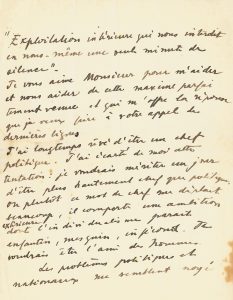 "Exploitation intérieure qui nous interdit
en nous-même une seule minute de
silence".
Je vous aime Monsieur pour m'aider
et nous aider de cette maxime parfai
tement venue et qui m'offre la réponse
que je veux faire à votre appel de
dernières lignes
J'ai longtemps rêvé d'être un chef
politique. J'ai écarté de moi cette
tentation : je voudrais mériter un jour
d'être plus hautement chef que politique,
ou plutôt ce mot de chef me déplaît
beaucoup, il comporte une ambition
extérieure
dont l'individualisme me paraît
enfantin, mesquin, infécond. Je
voudrais être l'ami des hommes.
Les problèmes politiques et
nationaux me semblent